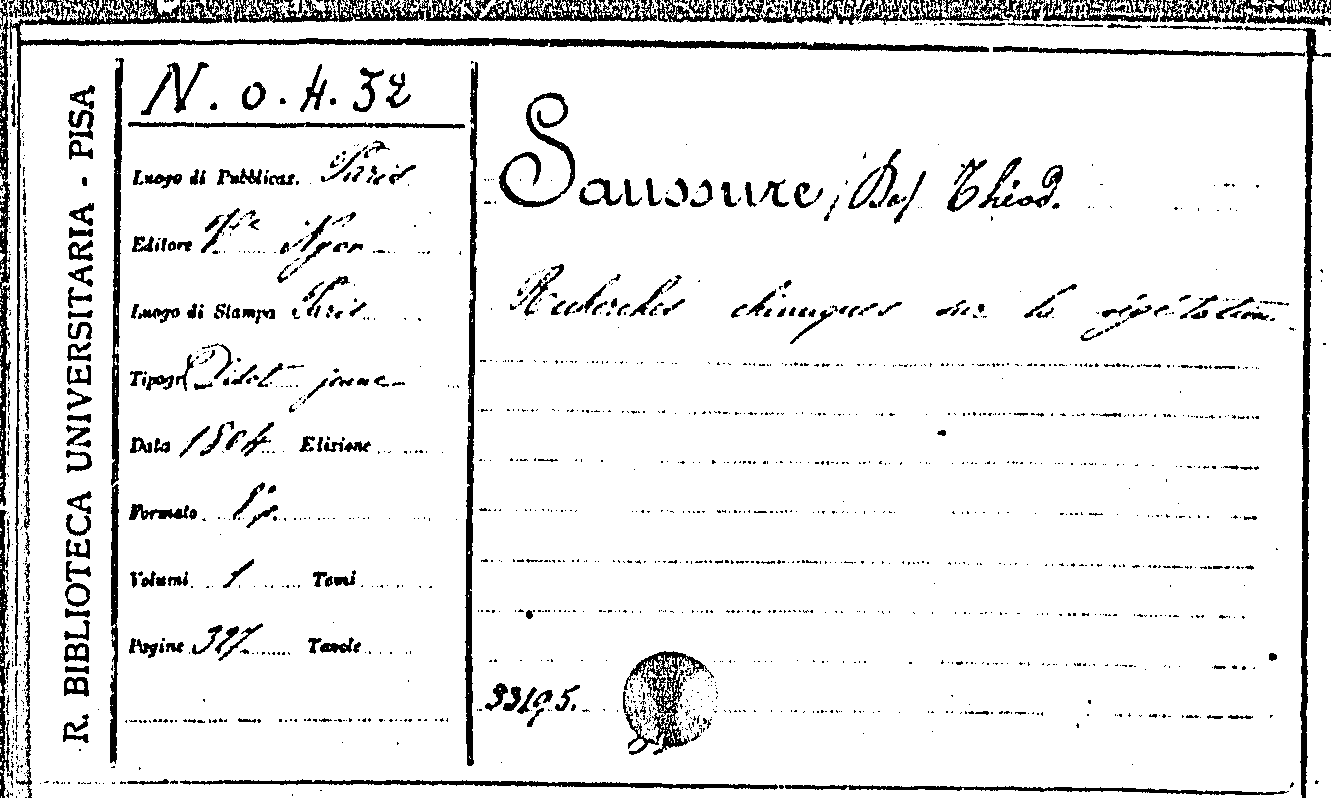 R. BIBLIOTECA UNIVERSITARIA - PISA
N. o. 4. 32
Luogo di Pubblicaz. Paris
Editore Vve Nyon
Luogo di Stampa Paris
Tipogr. Didot jeune
Data 1804 Edizione
Formato 8º
Volumi 1 Tomi
Pagine 327 Tavole
Saussure, (De) Théod.
Recherches chimiques sur la végétation.
33195.